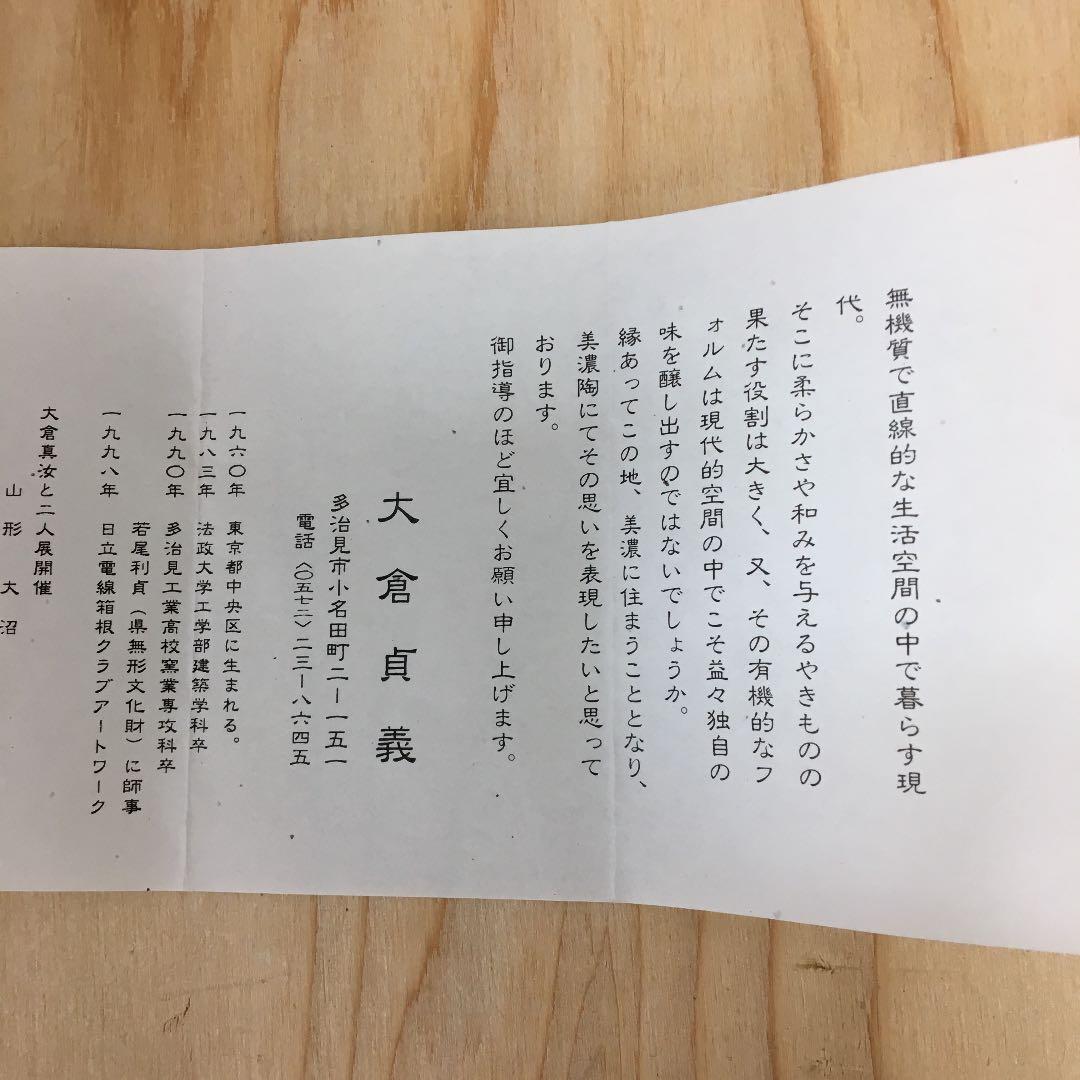 無機質で直線的な生活空間の中で暮らす現
代。
そこに柔らかさや和みを与えるやきものの
果たす役割は大きく、又、その有機的なフ
ォルムは現代的空間の中でこそ益々独自の
味を醸し出すのではないでしょうか。
縁あってこの地、美濃に住まうこととなり、
美濃陶にてその思いを表現したいと思って
おります。
御指導のほど宜しくお願い申し上げます。
大倉貞義
多治見市小名田町二ー一五一
電話〈〇五七二〉二三ー八六四五
一九六〇年 東京都中央区に生まれる。
一九八三年 法政大学工学部建築学科卒
一九九〇年 多治見工業高校窯業専攻科卒
若尾利貞（県無形文化財）に師事
一九九八年 日立電線箱根クラブアートワーク
大倉真汝と二人展開催
山形 大沼